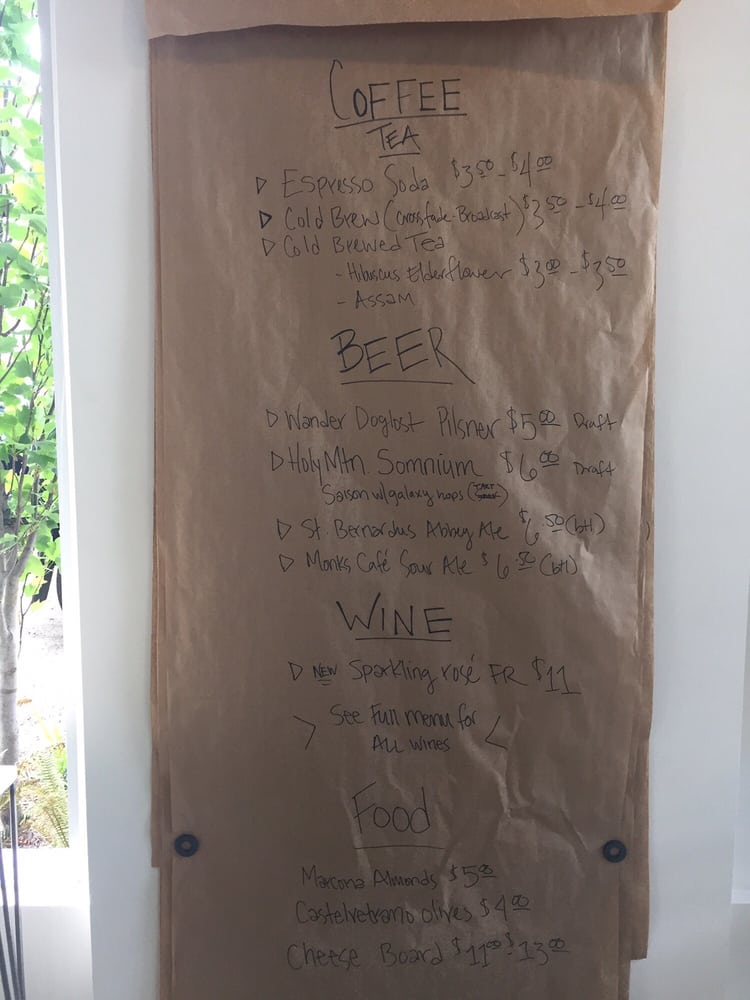 COFFEE
TEA
Espresso Soda $3.50 - $4.00
Cold Brew (Crossfade-Broadcast) $3.50 - $4.00
Cold Brewed Tea
- Hibiscus Elderflower $3.00 - $3.50
- Assam
BEER
Wander Doglost Pilsner $5.00 Draft
Holy Mtn. Somnium $6.00 Draft
Saison w/galaxy hops (TART
St. Bernardus Abbey Ale $6.50 (btl)
Monks Café Sour Ale $6.50 (btl)
WINE
NEW Sparkling rosé FR $11
See Full menu for
ALL WINES
Food
Marcona Almonds $5.00
Castelvetrano olives $4.00
Cheese Board $11.00 - $13.00